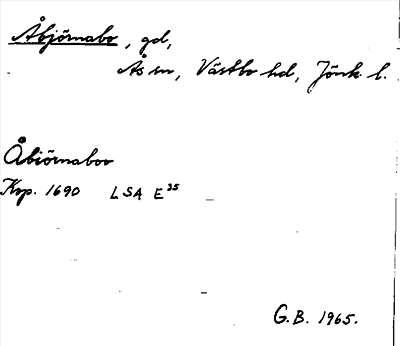 Åbjörnabo, gd,
Ås sn, Västbo hd, Jönk. l.
Åbiörnaboo
Krp. 1690 LSA E³⁵
G.B. 1965.